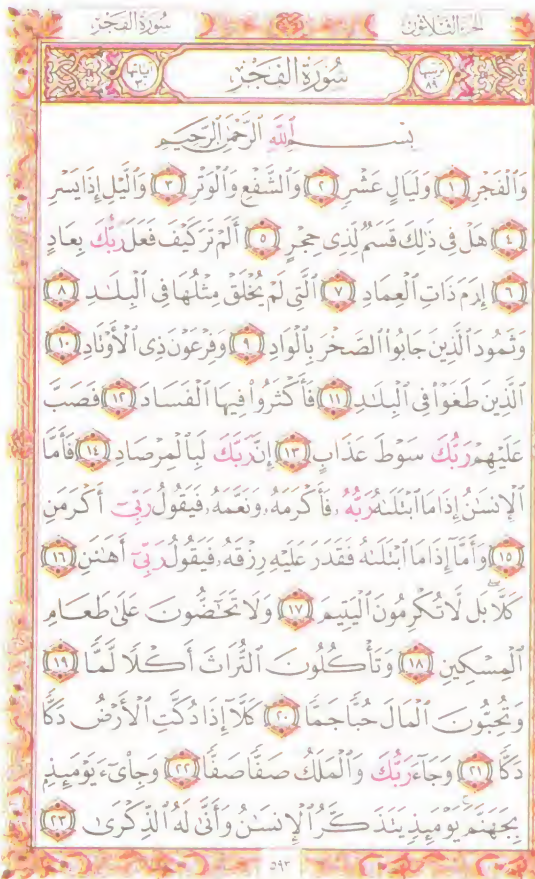 سُورَةُ الفَجْرِ الجُزءُ الثَّلَاثُونَ
آيَاتُهَا ٣٠ سُورَةُ الفَجْرِ تَرْتِيبُهَا ٨٩
بِسْمِ ٱللَّهِ ٱلرَّحْمَٰنِ ٱلرَّحِيمِ
وَٱلْفَجْرِ ١ وَلَيَالٍ عَشْرٍ ٢ وَٱلشَّفْعِ وَٱلْوَتْرِ ٣ وَٱلَّيْلِ إِذَا يَسْرِ
٤ هَلْ فِى ذَٰلِكَ قَسَمٌ لِّذِى حِجْرٍ ٥ أَلَمْ تَرَ كَيْفَ فَعَلَ رَبُّكَ بِعَادٍ
٦ إِرَمَ ذَاتِ ٱلْعِمَادِ ٧ ٱلَّتِى لَمْ يُخْلَقْ مِثْلُهَا فِى ٱلْبِلَٰدِ ٨
وَثَمُودَ ٱلَّذِينَ جَابُوا۟ ٱلصَّخْرَ بِٱلْوَادِ ٩ وَفِرْعَوْنَ ذِى ٱلْأَوْتَادِ ١٠
ٱلَّذِينَ طَغَوْا۟ فِى ٱلْبِلَٰدِ ١١ فَأَكْثَرُوا۟ فِيهَا ٱلْفَسَادَ ١٢ فَصَبَّ
عَلَيْهِمْ رَبُّكَ سَوْطَ عَذَابٍ ١٣ إِنَّ رَبَّكَ لَبِٱلْمِرْصَادِ ١٤ فَأَمَّا
ٱلْإِنسَٰنُ إِذَا مَا ٱبْتَلَىٰهُ رَبُّهُۥ فَأَكْرَمَهُۥ وَنَعَّمَهُۥ فَيَقُولُ رَبِّىٓ أَكْرَمَنِ
١٥ وَأَمَّآ إِذَا مَا ٱبْتَلَىٰهُ فَقَدَرَ عَلَيْهِ رِزْقَهُۥ فَيَقُولُ رَبِّىٓ أَهَٰنَنِ ١٦
كَلَّا ۖ بَل لَّا تُكْرِمُونَ ٱلْيَتِيمَ ١٧ وَلَا تَحَٰٓضُّونَ عَلَىٰ طَعَامِ
ٱلْمِسْكِينِ ١٨ وَتَأْكُلُونَ ٱلتُّرَاثَ أَكْلًا لَّمًّا ١٩
وَتُحِبُّونَ ٱلْمَالَ حُبًّا جَمًّا ٢٠ كَلَّآ إِذَا دُكَّتِ ٱلْأَرْضُ دَكًّا
دَكًّا ٢١ وَجَآءَ رَبُّكَ وَٱلْمَلَكُ صَفًّا صَفًّا ٢٢ وَجِا۟ىٓءَ يَوْمَئِذٍۭ
بِجَهَنَّمَ ۚ يَوْمَئِذٍ يَتَذَكَّرُ ٱلْإِنسَٰنُ وَأَنَّىٰ لَهُ ٱلذِّكْرَىٰ ٢٣
٥٩٣